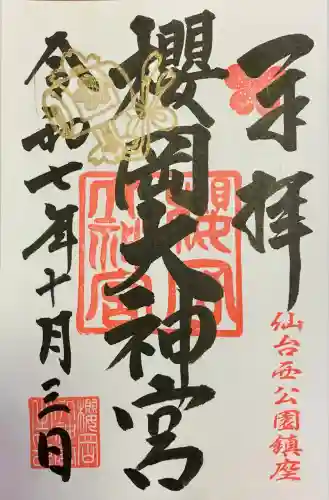 奉拝
仙台西公園鎮座
櫻岡大神宮
櫻岡大神宮
令和七年十月三日